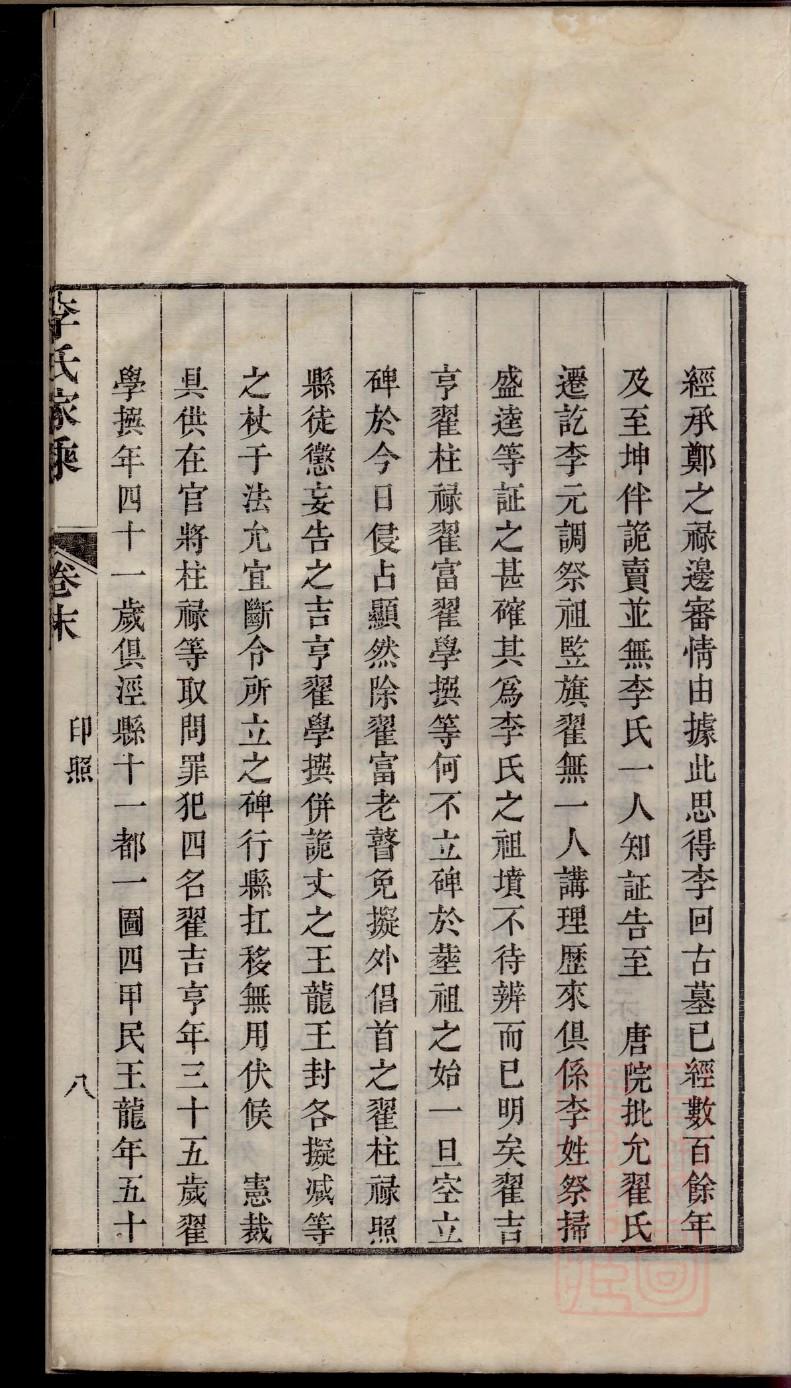 經承鄭之祿邊審情由據此思得李回古墓已經數百餘年
及至坤伴詭賣並無李氏一人知証告至　唐院批允翟氏
遷訖李元調祭祖竪旗翟無一人講理歷來俱係李姓祭掃
盛逵等証之甚確其爲李氏之祖墳不待辨而已明矣翟吉
亨翟柱祿翟富翟學撰等何不立碑於塟祖之始一旦突立
碑於今日侵占顯然除翟富老瞽免擬外倡首之翟柱祿照
縣徒懲妄告之吉亨翟學撰併詭丈之王龍王封各擬減等
之杖于法允宜斷令所立之碑行縣扛移無用伏候　憲裁
具供在官將柱祿等取問罪犯四名翟吉亨年三十五歲翟
學撰年四十一歲俱涇縣十一都一圖四甲民王龍年五十
李氏家乘　卷末　印照　八